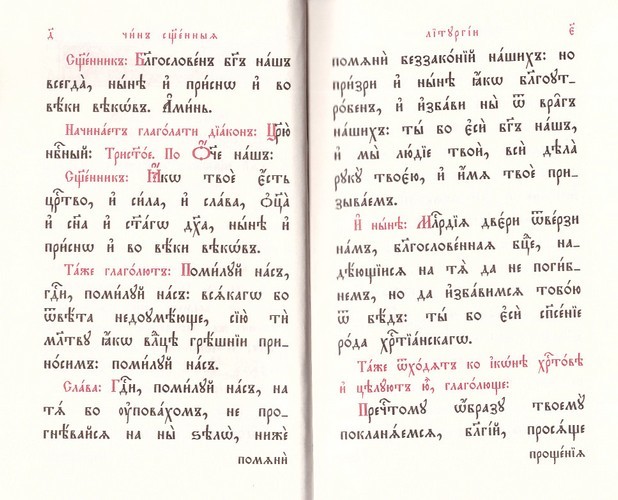 д҃
чи́нъ сщ҃е́нныѧ
Сщ҃е́нникъ: Бл҃гослове́нъ бг҃ъ на́шъ
всегда̀, ны́нѣ и҆ при́снѡ и҆ во
вѣ́ки вѣкѡ́въ. А҆ми́нь.
Начина́етъ глаго́лати дїа́конъ: Цр҃ю̀
нбⷭ҇ный: Трист҃о́е. По Ѻ҆́ч҃е на́шъ:
Сщ҃е́нникъ: Ꙗ҆́кѡ твоѐ є҆́сть
црⷭ҇тво, и҆ си́ла, и҆ сла́ва, ѻ҆ц҃а̀
и҆ сн҃а и҆ ст҃а́гѡ дх҃а, ны́нѣ и҆
при́снѡ и҆ во вѣ́ки вѣкѡ́въ.
Та́же глаго́лютъ: Поми́лꙋй на́съ,
гдⷭ҇и, поми́лꙋй на́съ: всѧ́кагѡ бо
ѿвѣ́та недоꙋмѣ́юще, сїю̀ тѝ
мл҃твꙋ ꙗ҆́кѡ влⷣцѣ грѣ́шнїи при-
но́симъ: поми́лꙋй на́съ.
Сла́ва: Гдⷭ҇и, поми́лꙋй на́съ, на
тѧ́ бо ᲂу҆пова́хомъ, не про-
гнѣ́вайсѧ на ны̀ ѕѣлѡ̀, нижѐ
помѧнѝ
лїтꙋргі́и
є҃
помѧнѝ беззако́нїй на́шихъ: но
при́зри и҆ ны́нѣ ꙗ҆́кѡ бл҃гоꙋт-
ро́бенъ, и҆ и҆зба́ви ны̀ ѿ вра̑гъ
на́шихъ: ты́ бо є҆сѝ бг҃ъ на́шъ,
и҆ мы̀ лю́дїе твоѝ, всѝ дѣла̀
рꙋкꙋ̀ твоє́ю, и҆ и҆́мѧ твоѐ при-
зыва́емъ.
И҆ ны́нѣ: Млⷭ҇рдїѧ две́ри ѿве́рзи
на́мъ, бл҃гослове́ннаѧ бцⷣе, на-
дѣ́ющїисѧ на тѧ̀ да не поги́б-
немъ, но да и҆зба́вимсѧ тобо́ю
ѿ бѣ́дъ: ты́ бо є҆сѝ сп҃се́нїе
ро́да хрⷭ҇тїа́нскагѡ.
Та́же ѿхо́дѧтъ ко і҆кѡ́нѣ хрⷭ҇то́вѣ
и҆ цѣлꙋ́ютъ ю҆̀, глаго́люще:
Пречⷭ҇томꙋ ѻ҆́бразꙋ твоемꙋ̀
покланѧ́емсѧ, бл҃гі́й, просѧ́ще
проще́нїѧ